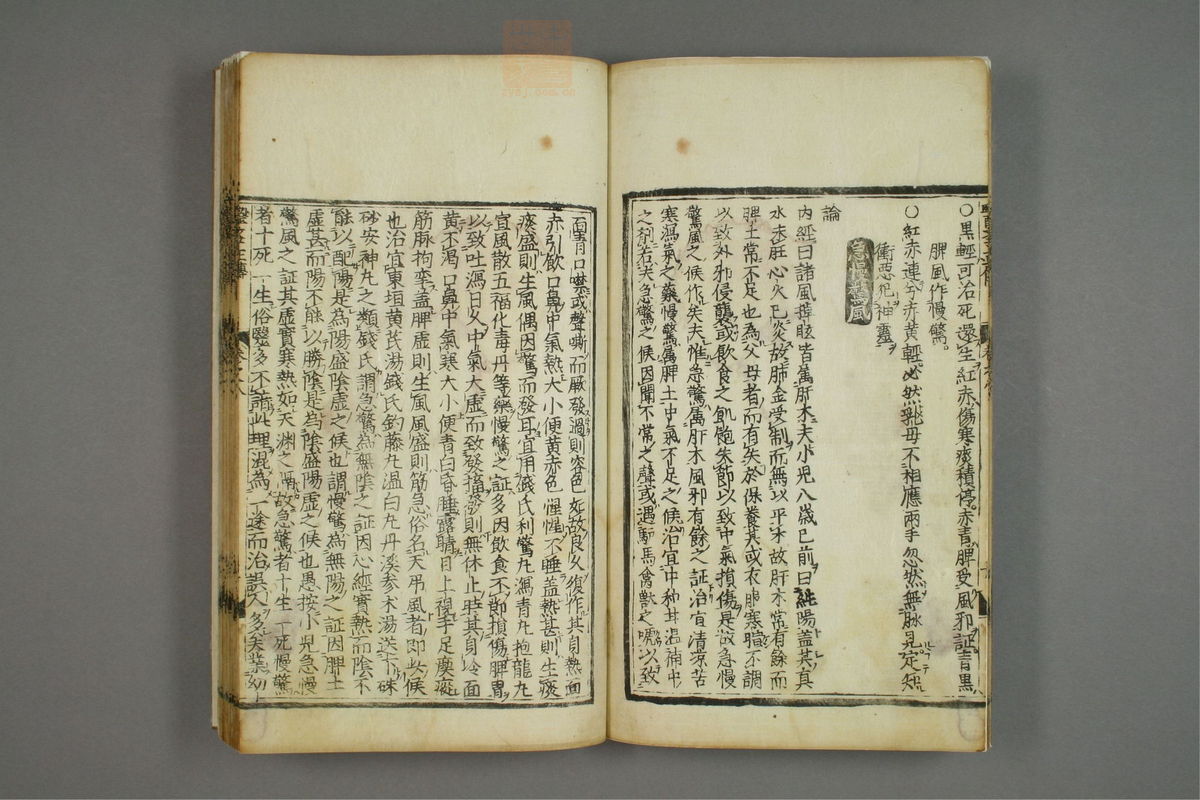 ○黒輕可治死還生紅赤傷寒痰積停赤青脾受風邪証青黒
脾風作慢驚
○紅赤連兮赤黄輕必然乳母不相應兩手忽然無脉見定知
衝悪犯神靈
急慢驚風
論
内經曰諸風掉眩皆属肝木夫小児八歳已前曰純陽盖其真
水未旺心火已炎故肺金受制而無以平木故肝木常有餘而
脾土常不足也為父母者而有失於保養其或衣服寒暄不調
以致外邪侵襲或飲食之飢飽失節以致中氣損傷是故急慢
驚風之候作矣夫惟急驚属肝木風邪有餘之証治宜清凉苦
寒瀉氣之藥慢驚属脾土中氣不足之候治宜中和甘温補中
之剤若夫急驚之候因聞不常之聲或遇馬禽獸之唬以致
面青口噤或聲嘶而厥發過則容色如故良久復作其身熱面
赤引飲口鼻中氣熱大小便黄赤色惺惺不睡盖熱甚則生痰
痰盛則生風偶因驚而發耳宜用錢氏利驚丸瀉青丸抱龍丸
宜風散五福化毒丹等藥慢驚之証多因飲食不節損傷脾胃
以致吐瀉日久中氣大虚而致發搐發則無休止時其身冷面
黄不渇口鼻中氣寒大小便青白昏睡露睛目上視手足瘈瘲
筋脉拘攣盖脾虚則生風風盛則筋急俗名天吊風者即此候
也治宜東垣黄芪湯錢氏釣藤丸温白丸丹溪参术湯送下硃
砂安神丸之類錢氏謂急驚為無陰之証因心經實熱而陰不
能以配陽是為陽盛陰虚之候也謂慢驚為無陽之証因脾土
虚甚而陽不能以勝陰是為陰盛陽虚之候也愚按小児急慢
驚風之証其虚實寒熱如天淵之隔故急驚者十生一死慢驚
者十死一生俗醫多不諳此理混為一途而治誤人多矣業幼